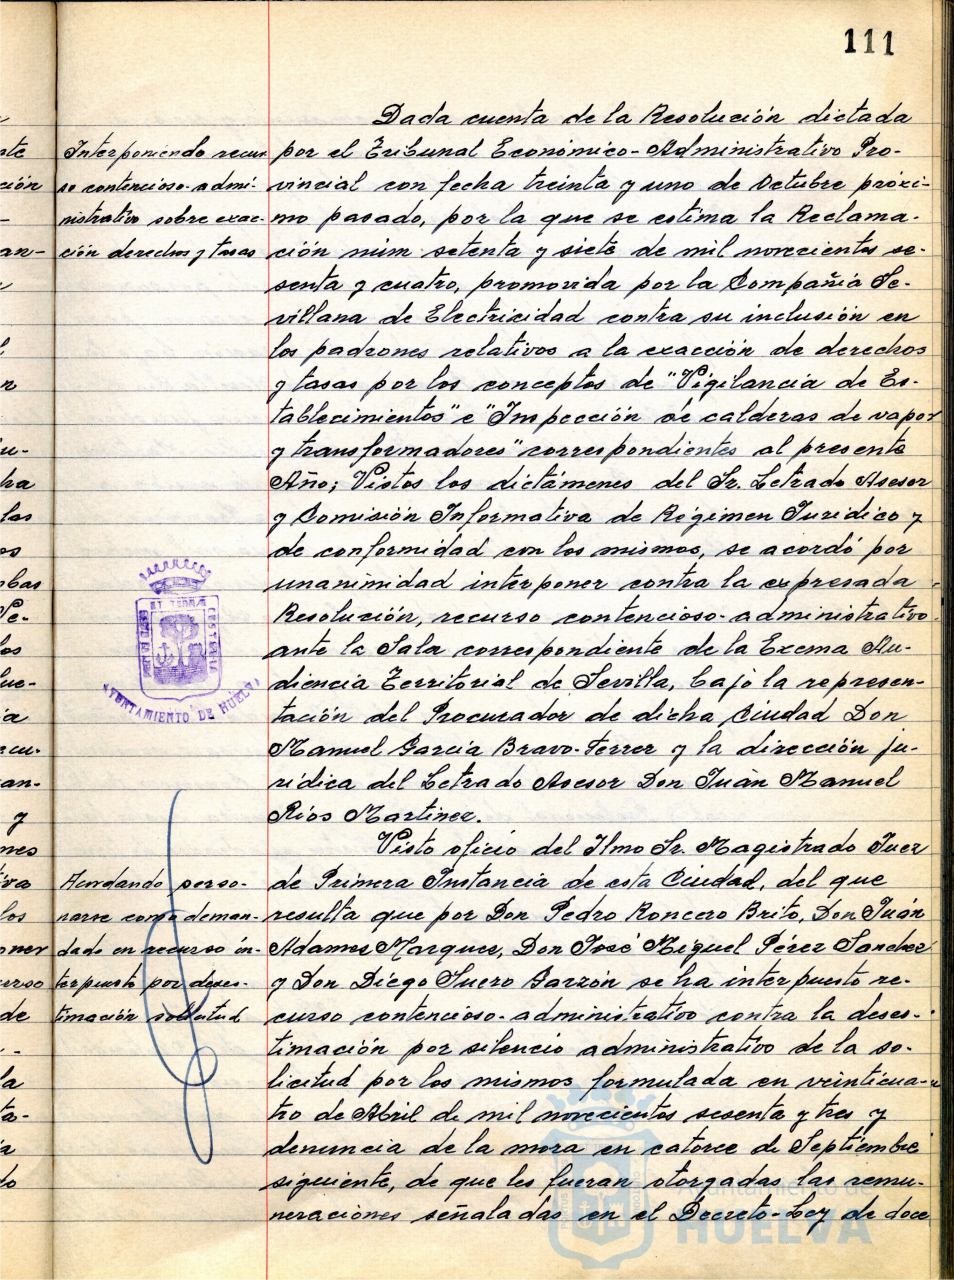 111
Dada cuenta de la Resolución dictada
Interponiendo recur-
so contencioso-admi-
nistrativo sobre exac-
ción derechos y tasas
por el Tribunal Económico-Administrativo Pro-
vincial con fecha treinta y uno de Octubre próxi-
mo pasado, por la que se estima la Reclama-
ción núm setenta y siete de mil novecientos se-
senta y cuatro, promovida por la Compañía Se-
villana de Electricidad contra su inclusión en
los padrones relativos a la exacción de derechos
y tasas por los conceptos de "Vigilancia de Es-
tablecimientos" e "Inspección de calderas de vapor
y transformadores" correspondientes al presente
Año; Vistos los dictámenes del Sr. Letrado Asesor
y Comisión Informativa de Régimen Juridico y
de conformidad con los mismos, se acordó por
unanimidad interponer contra la expresada
Resolución, recurso contencioso-administrativo
ante la Sala correspondiente de la Excma Au-
diencia Territorial de Sevilla, bajo la represen-
tación del Procurador de dicha Ciudad Don
Manuel García Bravo-Ferrer y la dirección ju-
rídica del Letrado Asesor Don Juán Manuel
Ríos Martinez.
AYUNTAMIENTO DE HUELVA
Visto oficio del Ilmo Sr. Magistrado Juez
Acordando perso-
narse como deman-
dado en recurso in-
terpuesto por deses-
timación solicitud
de Primera Instancia de esta Ciudad, del que
resulta que por Don Pedro Roncero Brito, Don Juán
Adames Marques, Don José Miguel Pérez Sanchez
y Don Diego Suero Garzón se ha interpuesto re-
curso contencioso-administrativo contra la deses-
timación por silencio administrativo de la so-
licitud por los mismos formulada en veinticua-
tro de Abril de mil novecientos sesenta y tres y
denuncia de la mora en catorce de Septiembre
siguiente, de que les fueran otorgadas las remu-
neraciones señaladas en el Decreto-Ley de doce
Ayuntamiento de
HUELVA